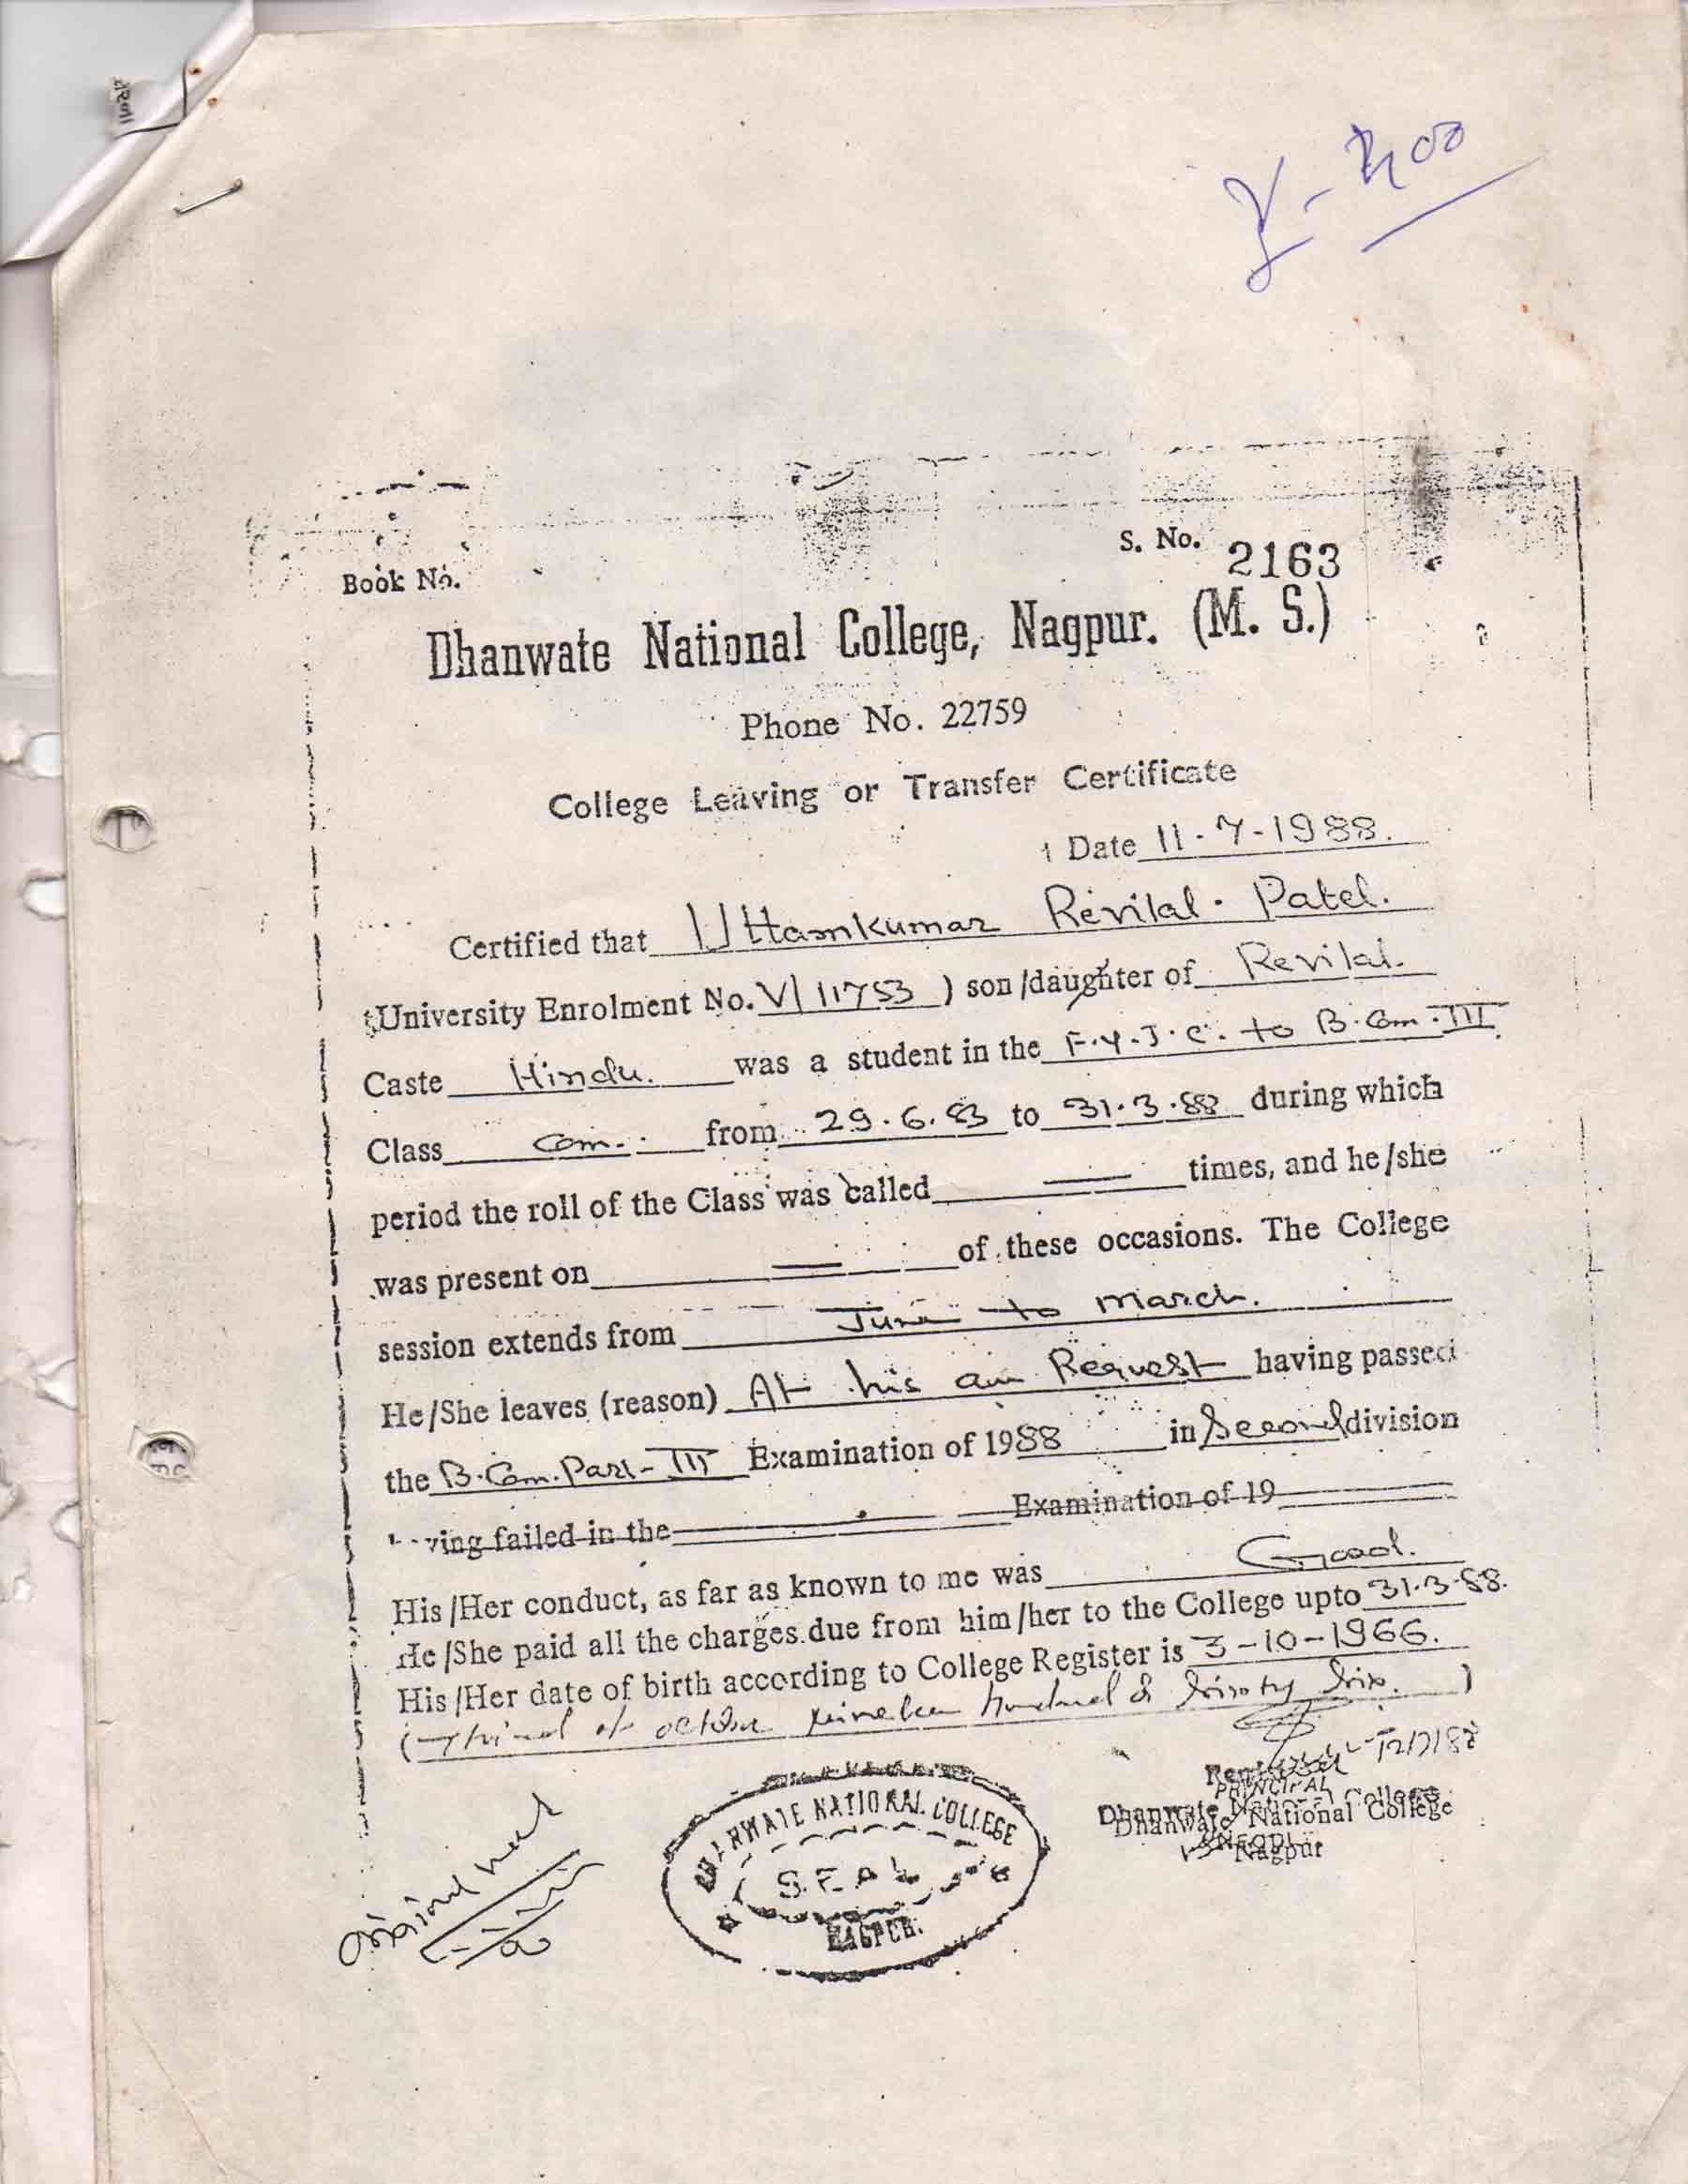 S. No. 2163
Book No.
Dhanwate National College, Nagpur. (M. S.)
Phone No. 22759
College Leaving or Transfer Certificate
Date 11-7-1988.
Certified that Uttamkumar Revilal. Patel.
University Enrolment No. V/11753 ) son/daughter of Revilal.
Caste Hindu. was a student in the F.Y.J.C. to B.Com.III.
Class Com. from 29.6.83 to 31.3.88 during which
period the roll of the Class was called — times, and he/she
was present on — of these occasions. The College
session extends from June to March.
He/She leaves (reason) At his own Request having passed
the B.Com.Part-III Examination of 1988 in Second division
ving failed in the Examination of 19
His/Her conduct, as far as known to me was Good.
He/She paid all the charges due from him/her to the College upto 31.3.88.
His/Her date of birth according to College Register is 3-10-1966.
( of october Nineteen hundred & Six. )
12/7/88
PRINCIPAL
Dhanwate National College
Nagpur
DHANWATE NATIONAL COLLEGE
SEAL
NAGPUR.